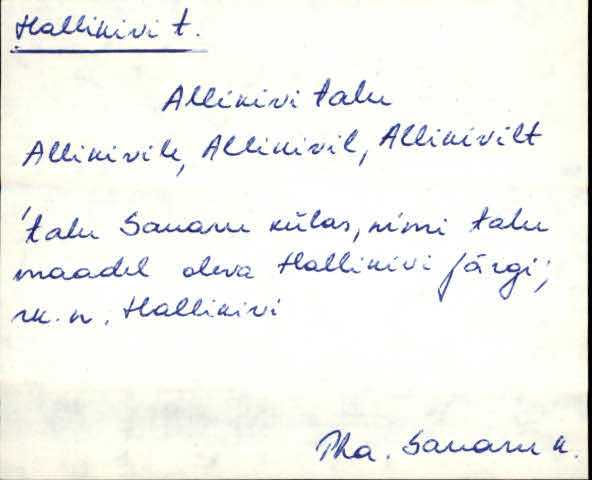 Hallikivi t.
Allikivi talu
Allikivile, Allikivil, Allikivilt
'talu Sauaru külas, nimi talu
maadel oleva Hallikivi järgi;
rk. n. Hallikivi
Pha. Sauaru k.